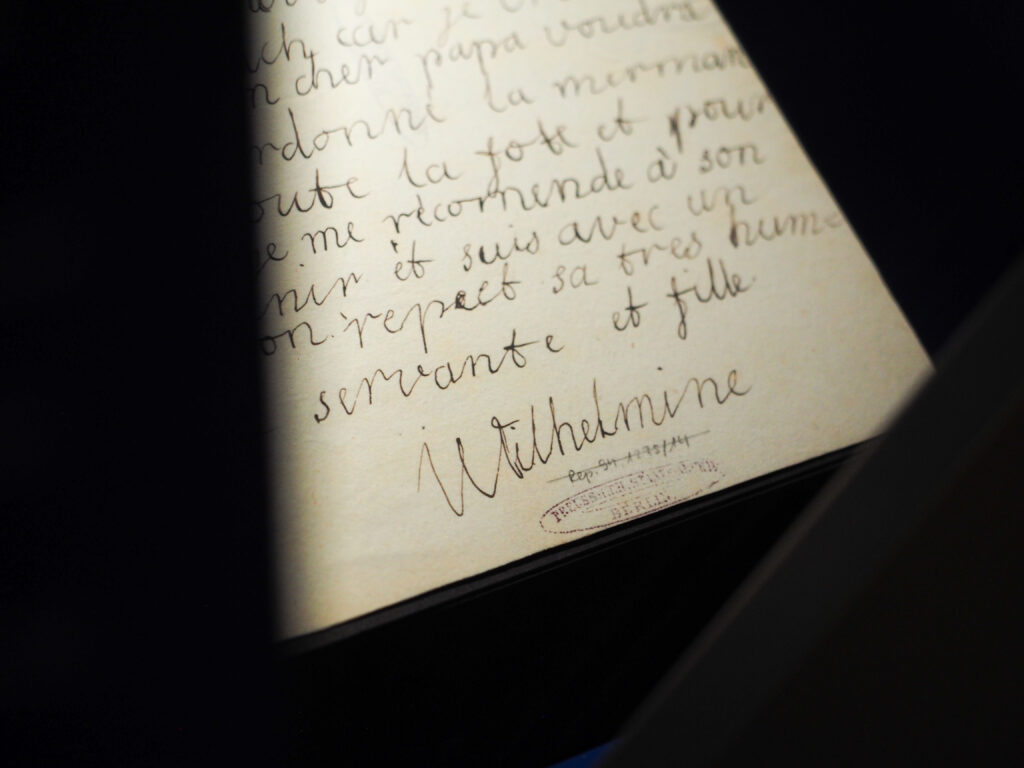 ch, car je
cher papa voudra
rdonne la merman
oute la fote et pour
je me recomende à son
nir et suis avec un
on repect sa tres hum
servante et fille
Wilhelmine
Rep. 94
BERLIN